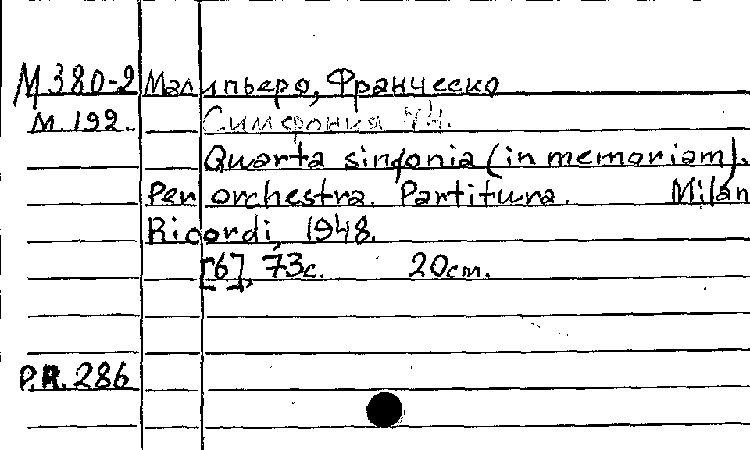 М380-2 Малипьеро, Франческо
М.192. Симфония №4.
Quarta sinfonia (in memoriam).
Per orchestra. Partitura. Milan
Ricordi, 1948.
[6], 73с. 20cm.
P.R. 286